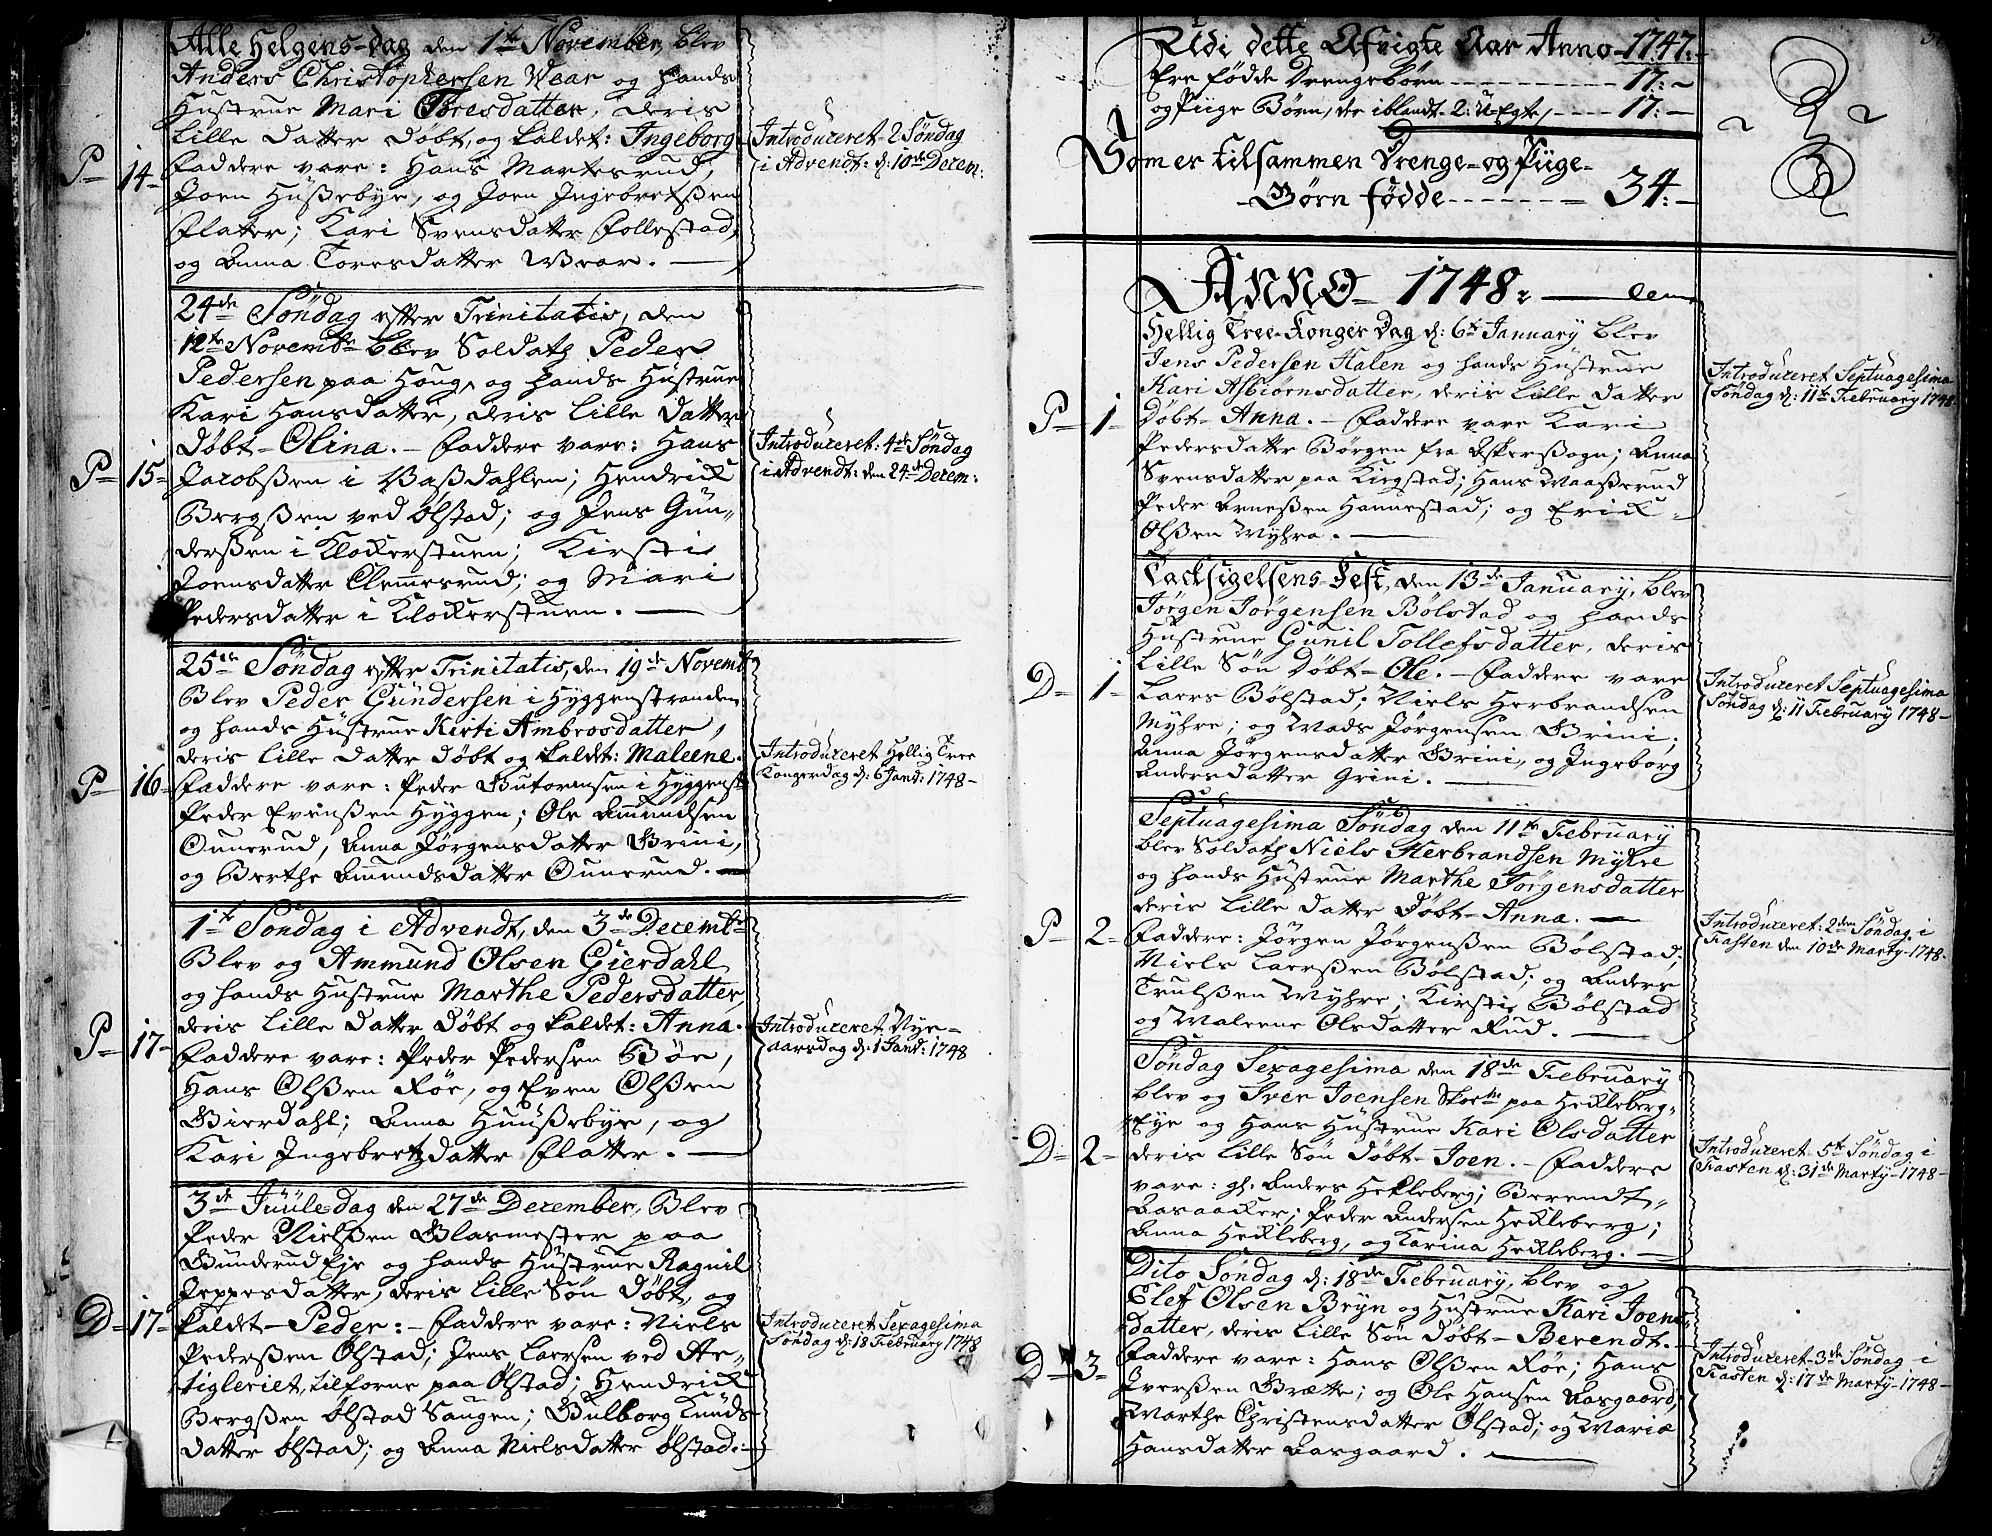 Alle Helgens-dag den 1te November, blev
Anders Christophersen Wear og hands
Hustrue Mari Toresdatter, deris
Lille datter døbt, og kaldet: Ingeborg
P 14 Faddere vare: Hans Martesrud,
Joen Hußebye, og Joen Ingebretsßen
Flatter; Kari Svensdatter Follestad,
og Anna Toresdatter Wear.
Introduceret 2 Søndag
i Advendt: d: 10de Decem:
24de Søndag efter Trinitatis, den
12te Novembr blev Soldath Peder
Pedersen paa Houg, og hands Hustrue
Kari Hansdatter, deris Lille datter
døbt - Olina. - Faddere vare: Hans
P 15 Jacobßen i Baßdahlen; Hendrick
Bergßen ved Ølstad; og Jens Gun-
derßen i Klockerstuen; Kirsti
Joensdatter Clemmesrud; og Mari
Pedersdatter i Klockerstuen.
Introduceret: 4de Søndag
i Advendt: den 24de Decem:
25de Søndag efter Trinitatis, den 19de Novemb
Blev Peder Gundersen i Hyggenstranden
og hands Hustrue Kirsti Ambrosdatter,
deris Lille datter døbt og kaldet: Maleene.
P 16 Faddere vare: Peder Guttormsen i Hyggenst
Peder Evenßen Hyggen; Ole Amundsen
Ounerud, Anna Jørgensdatter Grini,
og Berthe Amundsdatter Ounerud.
Introduceret Hellig Tree
Kongerdag d: 6 Jand: 1748
1te Søndag i Advendt, den 3de Decembr
Blev og Ammund Olsen Gierdahl
og hands Hustrue Marthe Pedersdatter,
deris Lille datter døbt og kaldet: Anna.
P 17 Faddere vare: Peder Pedersen Bøe,
Hans Olßen Røe, og Even Olßen
Gierdahl; Anna Huußebye, og
Kari Ingebretzdatter Flatter.
Introduceret Nye-
aarsdag d: 1 Jand: 1748
3de Juule-dag den 27de December, Blev
Peder Nielßen Glasmester paa
Gunderud Eje og hands Hustrue Ragnil
Jeppesdatter, deris Lille Søn døbt, og
D 17 kaldet - Peder: - Faddere vare: Niels
Pederßen Ølstad; Jens Larsen ved
tigleriet, tilforne paa Ølstad; Hendrick
Bergßen Ølstad Saugen; Gulborg Knuds
datter Ølstad; og Anna Nielsdatter Ølstad.
Introduceret Sexagesima
Søndag d: 18 Februarÿ 1748
Udi dette Afvigte Aar Anno 1747:
Ere fødde Drengebørn 17:
og Piige Børn, der iblandt 2: U-Egte, 17:
Som er tilsammen Drenge- og Piige-
Børn fødde 34:
ANNO 1748: den
Hellig Tree-Konger Dag d: 6te Januarÿ blev
Jens Pedersen Halen og hands Hustrue
Kari Asbiørnsdatter, deris Lille datter
P 1 døbt - Anna. - Faddere vare Kari
Pedersdatter Børgen fra Askersogn; Anna
Svensdatter paa Kirgstad; Hans Waaßerud
Peder Arneßen Hannestad; og Erick
Olßen Myhre.
Introduceret Septuagesima
Søndag d: 11te Februarÿ 1748
Tacksigelsens-Fest, den 13de Januarÿ, blev
Jørgen Jørgensen Bølstad og hands
Hustrue Gunil Tollefsdatter, deris
Lille Søn døbt - Ole. - Faddere vare
D 1 Laers Bølstad; Niels Herbrandsen
Myhre; og Mads Jørgensen Grini;
Anna Jørgensdatter Grini, og Ingeborg
Andersdatter Grini.
Introduceret Septuagesima
Søndag d: 11 Februarÿ 1748
Septuagesima Søndag den 11te Februarÿ
blev Soldath Niels Herbrandsen Myhre
og hands Hustrue Marthe Jørgensdatter
deris Lille datter døbt - Anna.
P 2 Faddere: Jørgen Jørgenßen Bølstad;
Niels Laerßen Bølstad; og Anders
Trulßen Myhre; Kirsti Bølstad
og Maleene Olsdatter Rud.
Introduceret: 2den Søndag i
Fasten den 10de Martÿ 1748
Søndag Sexagesima den 18de Februarÿ
blev og Iver Joensen paa Heckleberg-
Eye og Hans Hustrue Kari Olsdatter
D 2 deris Lille Søn døbt - Joen. - Faddere
vare: gl. Anders Hekleberg; Berendt
Aasaacker; Peder Andersen Heckleberg;
Anna Heckleberg, og Karina Heckleberg.
Introduceret 5te Søndag i
Fasten d: 31de Martÿ 1748
Dito Søndag d: 18de Februarÿ, blev og
Elef Olsen Brÿn og Hustrue Kari Joens-
datter, deris Lille Søn døbt - Berendt.
D 3 Faddere vare: Hans Olßen Røe; Hans
Iverßen Brætte; og Ole Hansen Aasgaard,
Marthe Christensdatter Ølstad; og Mariæ
Hansdatter Aasgaard.
Introduceret 3de Søndag i
Fasten d: 17de Martÿ 1748